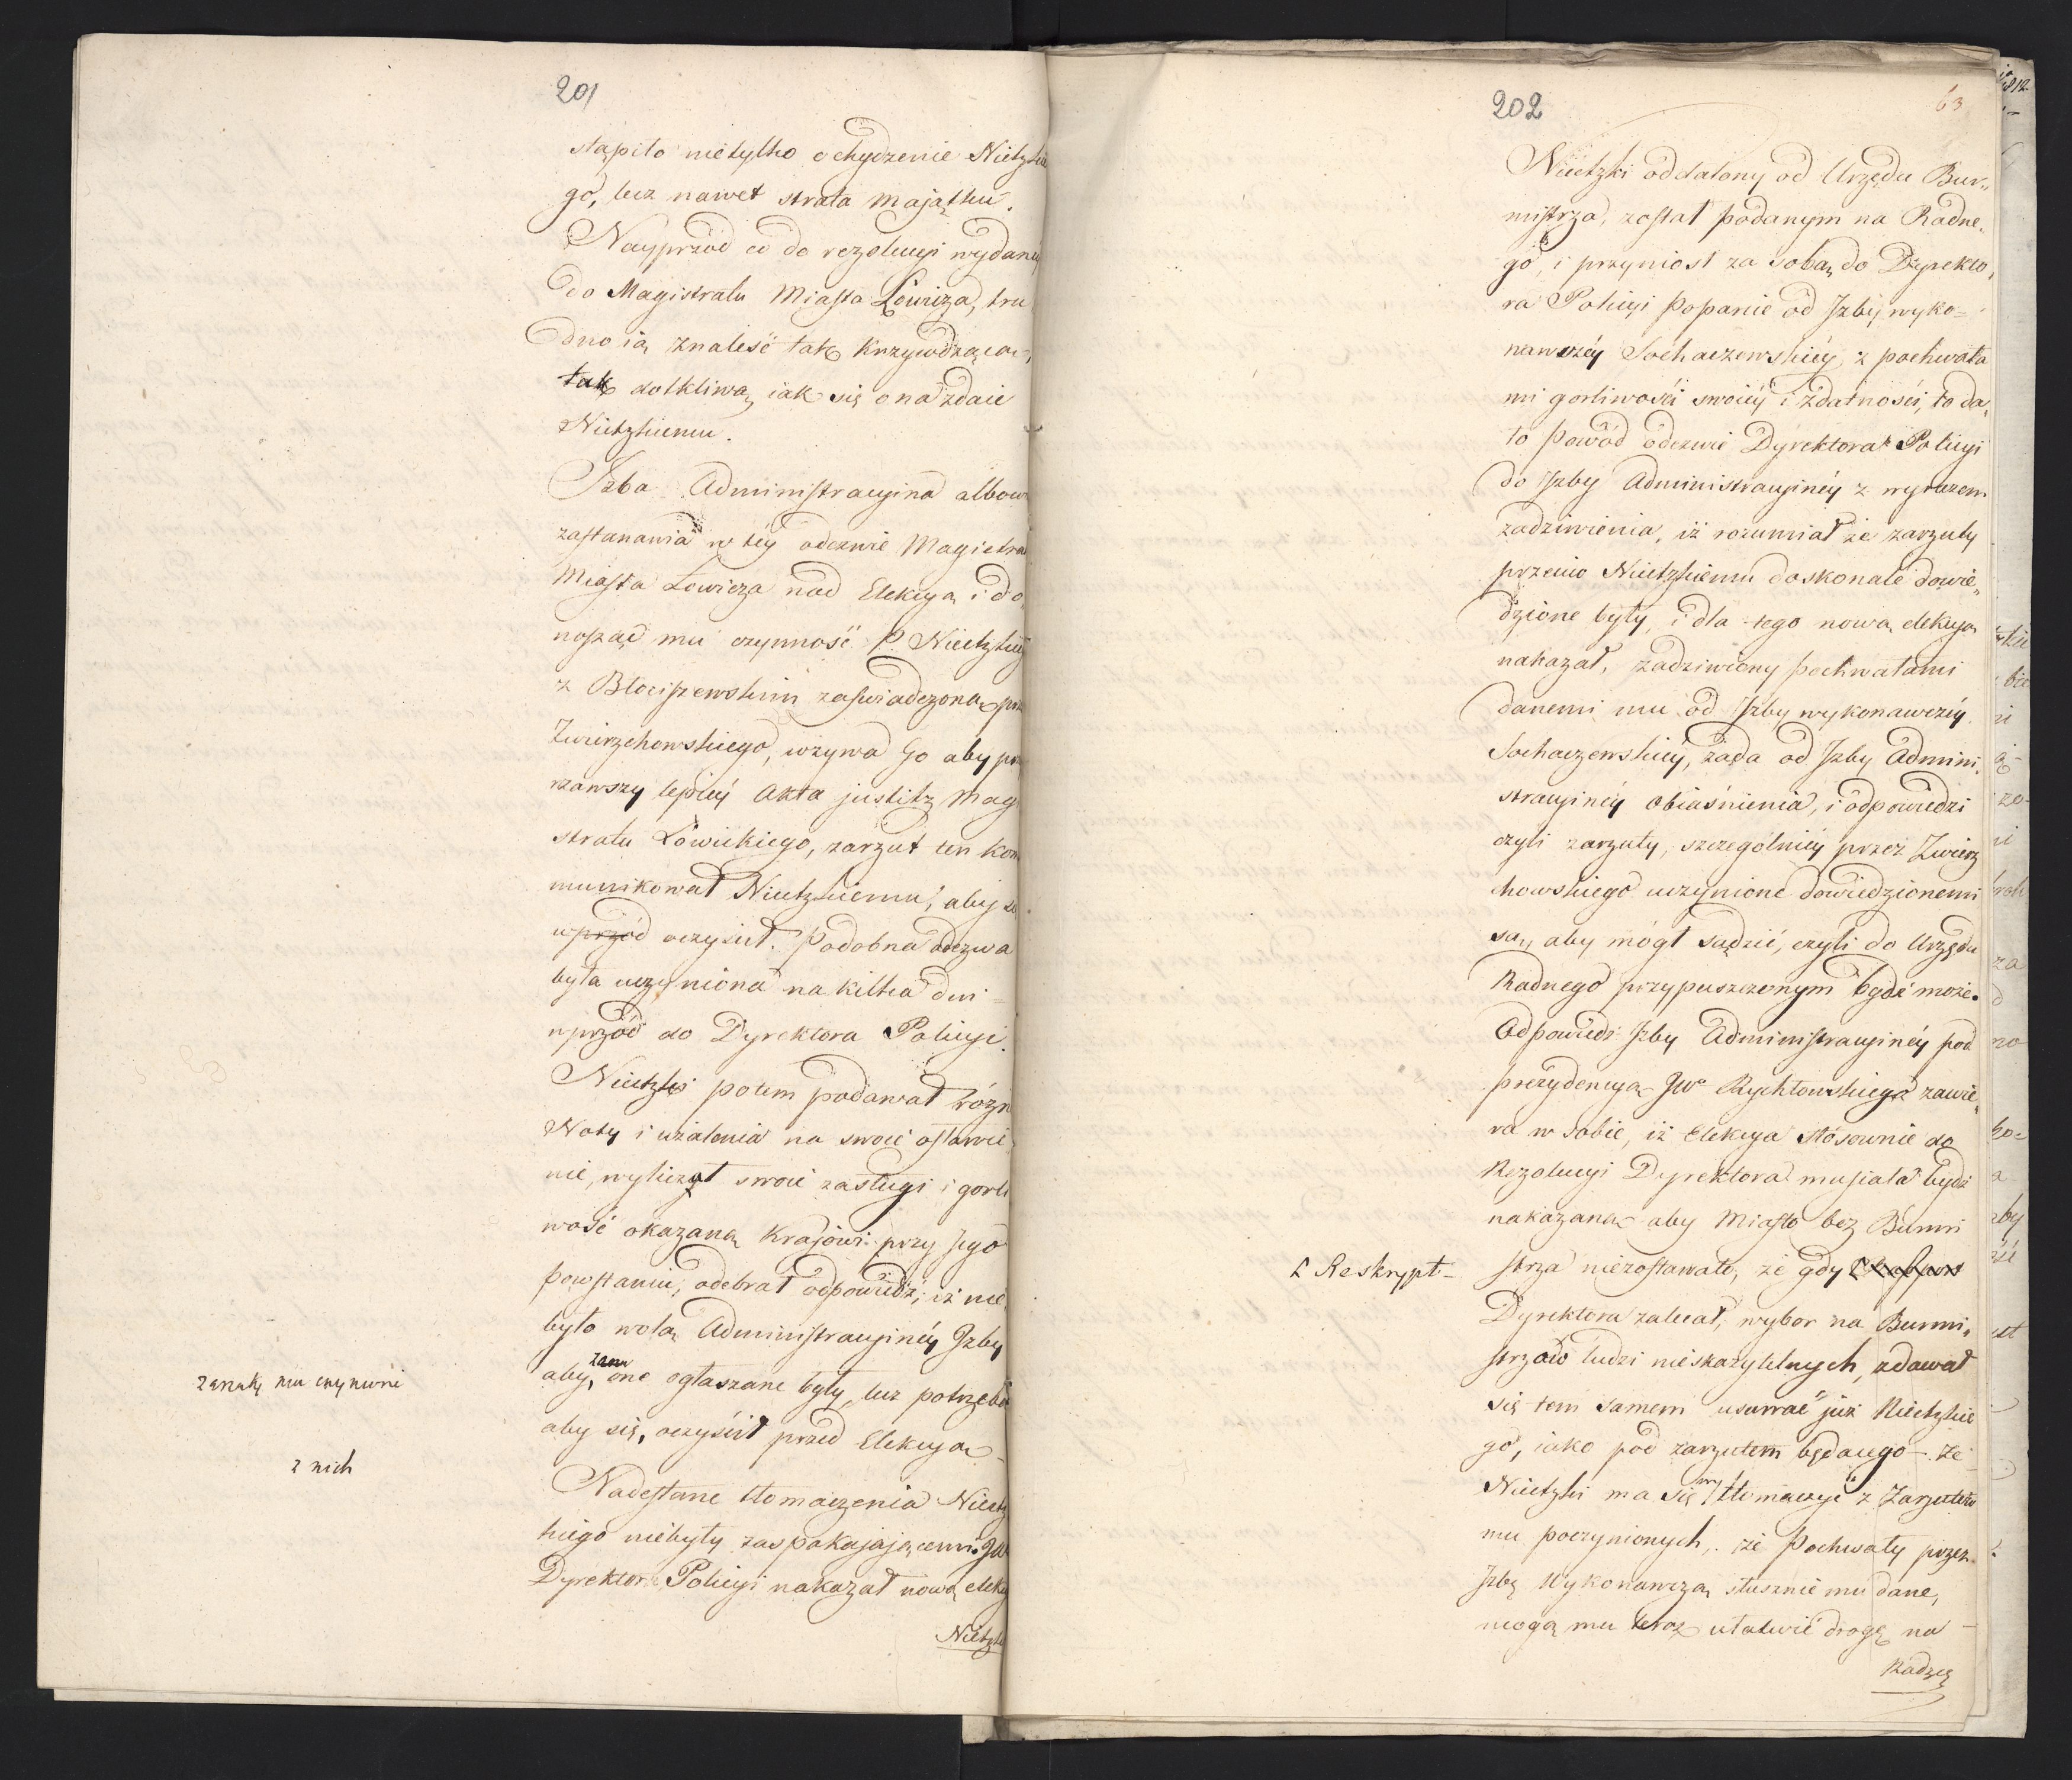 201
stąpiło nietylko ochydzenie Nietzkie
go, lecz nawet strata majątku.
Nayprzód co do rezolucyi wydaney
do Magistratu Miasta Łowicza, tru
dno ią znaleść tak krzywdzącą,
tak dotkliwą iak się ona zdaie
Nietzkiemu.
Izba Administracyina albow
zastanawia w tey odezwie Magistra
Miasta Łowicza nad Elekcyą i do
nosząc mu czynność P. Nietzkieg
z Błociszewskim zaświadczoną prze
Zwierzchowskiego, wzywa Go aby prz
rzawszy lepiéy Akta justitz Mag
stratu Łowickiego, zarzut ten kom
munikował Nietzkiemu, aby się
wprzód oczyścił. Podobna odezwa
była uczyniona na kilka dni =
wprzód do Dyrektora Policyi.
Nietzki potem podawał różn
Noty i użalenia na swoie osławie
nie, wyliczał swoie zasługi i gorli
wość okazaną Krajowi przy Jego
powstaniu, odebrał odpowiedź, iż nie
było wolą Administracyinéy Izby
aby one ogłaszane były, lecz potrzeba
zarzuty mu czynione
aby się, oczyścił przed Elekcyą –
z nich
Nadesłane tłomaczenia Nietz
kiego niebyły zaspakajającemi. JW
Dyrektor Policyi nakazał nową elekc
Nietzki
202
63
Nietzki oddalony od Urzędu Bur„
mistrza, został podanym na Radne„
go, i przyniosł za sobą do Dyrekto„
ra Policyi Poparcie od Izby wyko=
nawczéy Sochaczewskiéy, z pochwała
mi gorliwości swoiéy i zdatności, to da„
ło powód odezwie Dyrektora Policyi
do Izby Administracyinéy z wyrazem
zadziwienia, iż rozumiał że zarzuty
przeciw Nietzkiemu doskonale dowie„
dzione były, i dla tego nową elekcyą
nakazał, zadziwiony pochwałami
danemi mu od Izby wykonawczéy
Sochaczewskiéy, żąda od Izby Admini
stracyinéy obiaśnienia, i odpowiedzi
czyli zarzuty, szczególniéy przez Zwierz
chowskiego uczynione dowiedzionemi
są, aby mógł sądzić, czyli do Urzędu
Radnego przypuszczonym bydź może.
Odpowiedź Izby Administracyinéy pod
prezydencyą JWo Rychłowskiego zawie„
ra w sobie, iż Elekcya stósownie do
Rezolucyi Dyrektora musiała bydź
nakazaną aby Miasto bez Burmi
strza niezostawało, że gdy
Reskrypt –
Dyrektora zalecał, wybor na Burmi„
strzów ludzi nieskazytelnych, zdawał
się tem samem usuwać już Nietzkie
go, iako pod zarzutem będącego – że
Nietzki ma się tłomaczyć z Zarzutów
mu poczynionych, że Pochwały przez
Izbę Wykonawczą słusznie mu dane,
mogą mu teraz ułatwić drogę na –
Radzcę